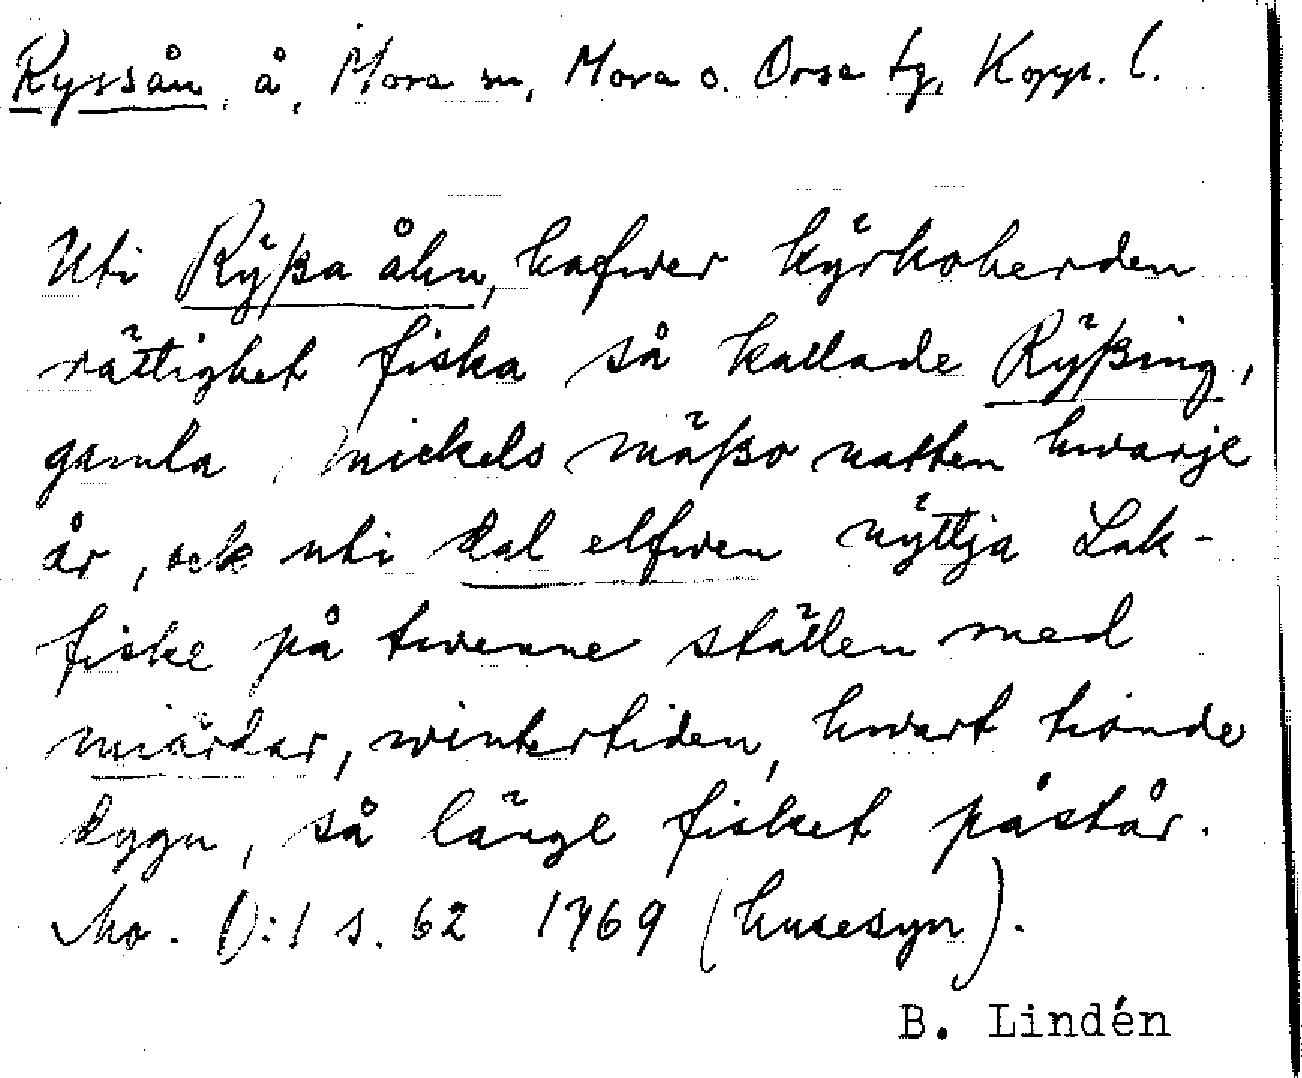 Ryssån, å, Mora sn, Mora o. Orsa tg, Kopp. l.
Uti Rÿßa åhn, hafwer kÿrkoherden
rättighet fiska så kallade Rÿßing,
gamla mickels mäßo natten hwarje
år, ock uti dal elfwen nÿttja Lak-
fiske på twenne ställen med
miärdar, wintertiden, hwart tionde
dygn, så länge fisket påstår.
Mo. D:1 s. 62 1769 (husesyn).
B. Lindén